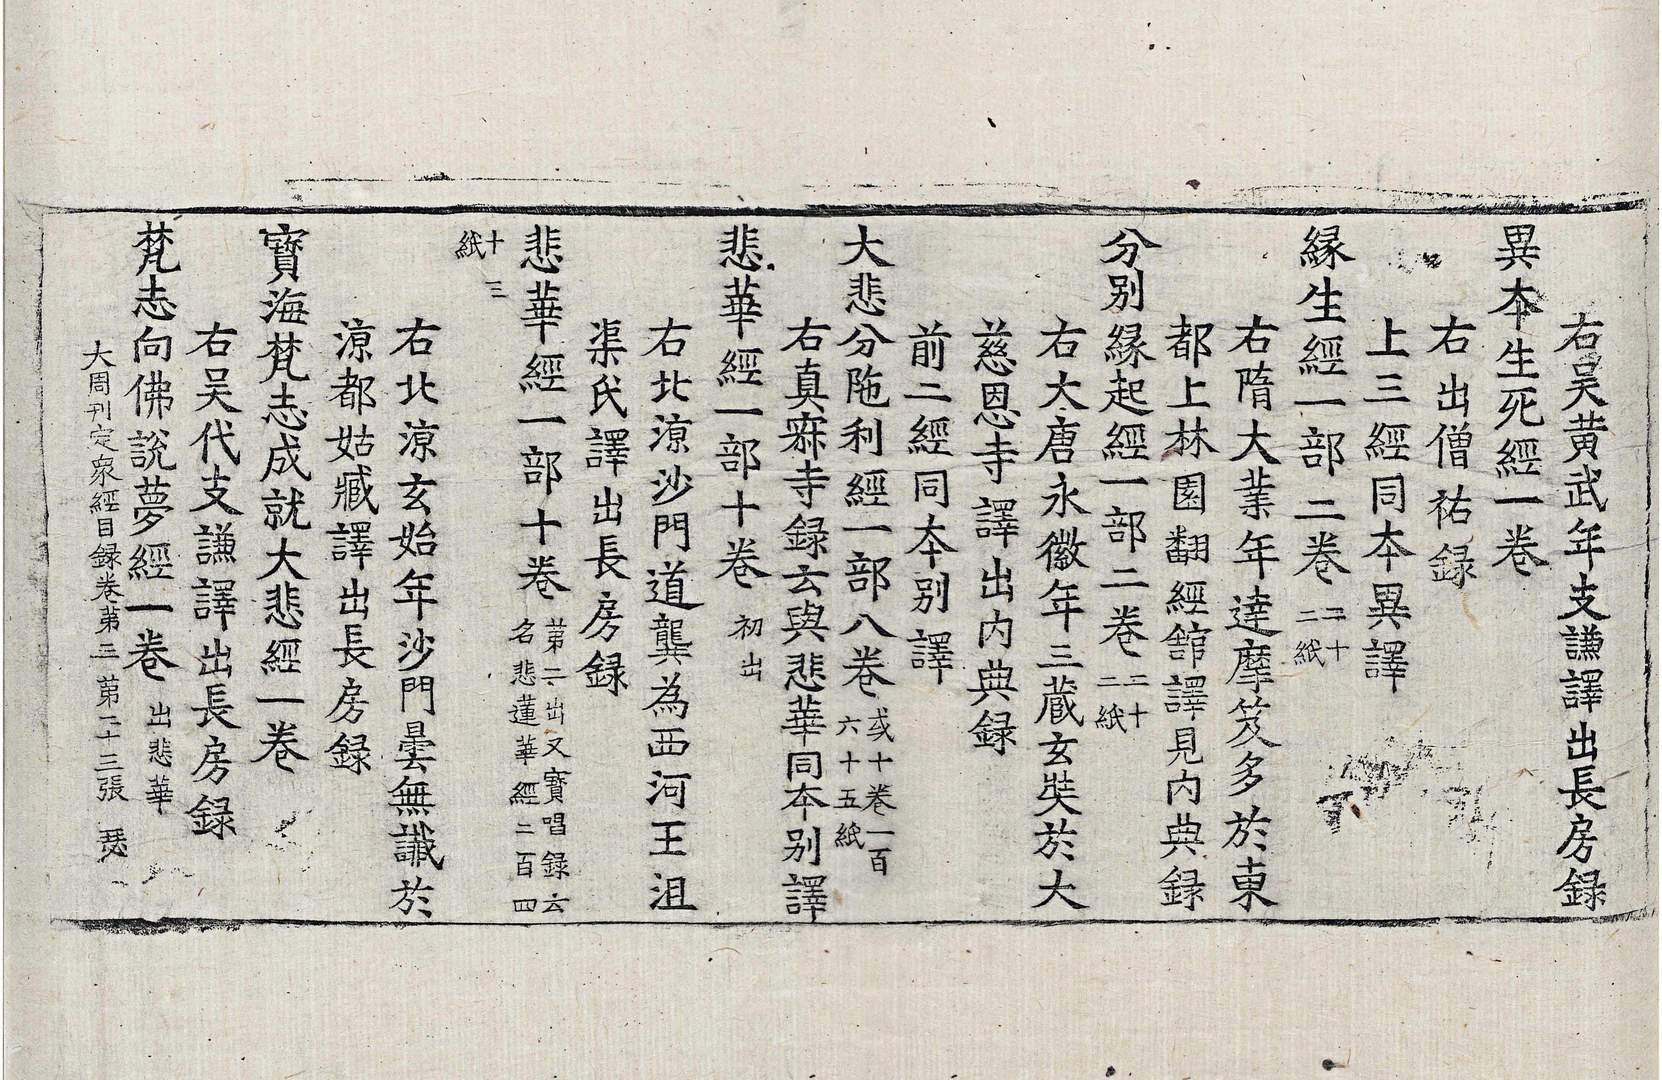 右吴黄武年支謙譯出長房録
異本生死經一卷
右出僧祐録
上三經同本異譯
縁生經一部二卷 二十二紙
右隋大業年達摩笈多於東
都上林園翻經館譯見内典録
分别縁起經一部二卷 二十二紙
右大唐永徽年三蔵玄奘於大
慈恩寺譯出内典録
前二經同本别譯
大悲分陁利經一部八卷 或十卷一百六十五紙
右真寂寺録云與悲華同本别譯
悲華經一部十卷 初出
右北涼沙門道龔為西河王沮
渠氏譯出長房録
悲華經一部十卷 第二出又寶唱録云名悲蓮華經二百四
十三紙
右北涼玄始年沙門曇無讖於
涼都姑臧譯出長房録
寶海梵志成就大悲經一卷
右吴代支謙譯出長房録
梵志向佛說夢經一卷 出悲華
大周刊定衆經目録卷第三 第二十三張 瑟